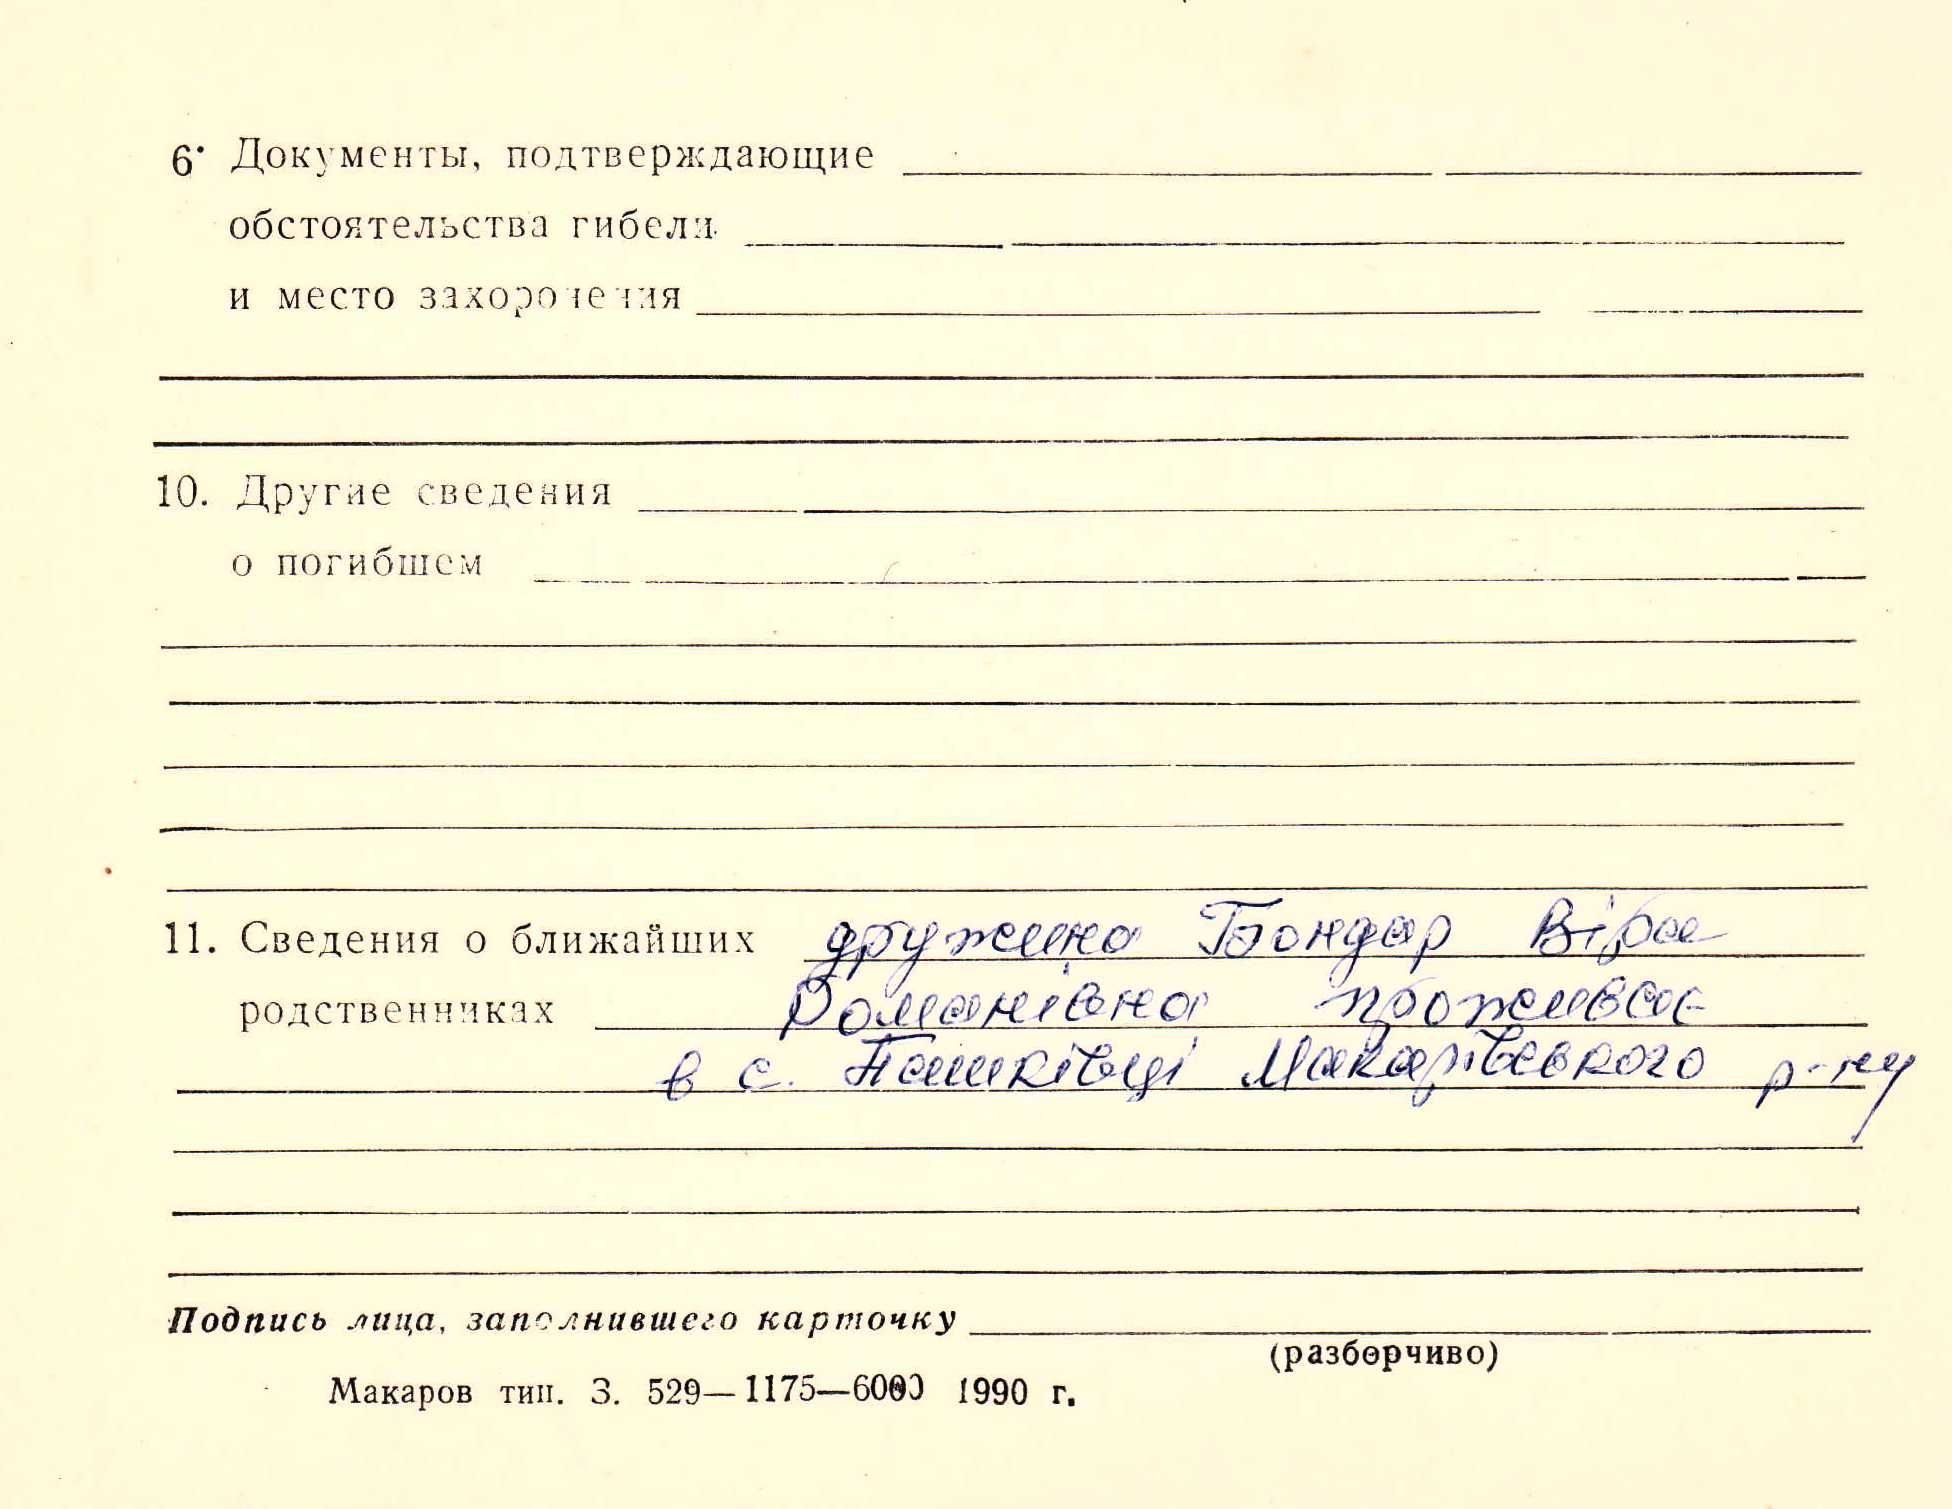 6. Документы, подтверждающие
обстоятельства гибели
и место захоронения
10. Другие сведения
о погибшем
11. Сведения о ближайших дружина Бондар Віра
родственниках Романівна проживає
в с. Пашківці Макарівського р-ну
Подпись лица, заполнившего карточку
(разборчиво)
Макаров тип. З. 529—1175—6000 1990 г.